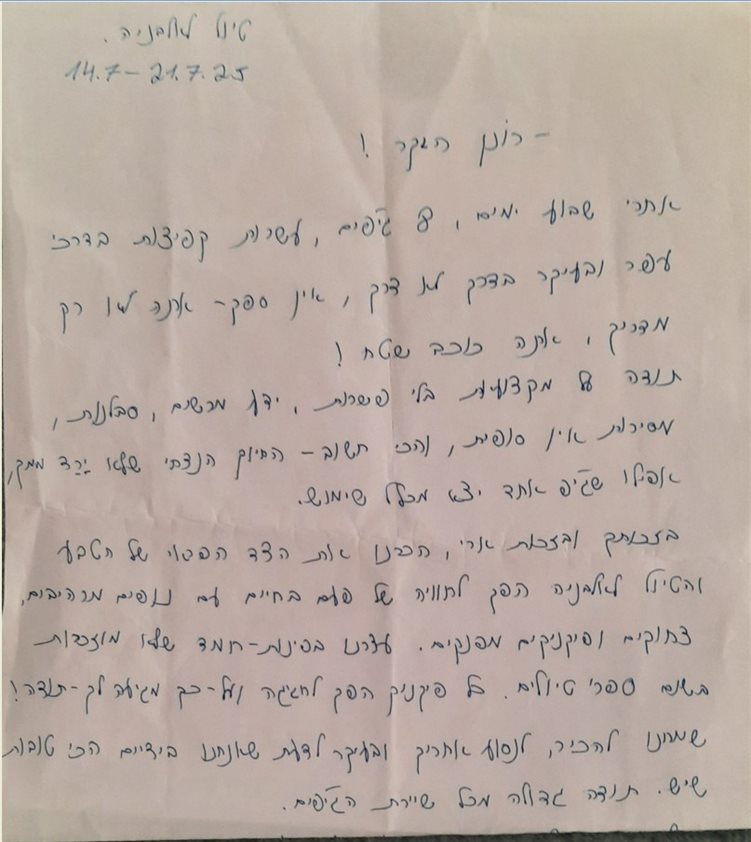 טיול לאלבניה.
14.7-21.7.25
- רונן היקר!
אחרי שבוע ימים, 8 ג'יפים, עשרות קפיצות בדרכי
עפר ובעיקר בדרך לא דרך, אין ספק- אתה לא רק
מדריך, אתה כוכב שטח!
תודה על מקצועיות בלי פשרות, ידע מרשים, סבלנות,
מסירות אין סופית, והכי חשוב- החיוך הנצחי שלא יָרַד ממך,
אפילו שג'יפ אחד יצא מכלל שימוש.
בזכותך ובזכות ארי, הכרנו את הצד הפראי של הטבע
והטיול לאלבניה הפך לחוויה של פעם בחיים עם נופים מרהיבים,
צחוקים ופיקניקים מפנקים. עצרנו בפינות-חמד שלא מוזכרות
בשום ספרי טיולים. כל פיקניק הפך לחגיגה ועל-כך מגיעה לך-תודה!
שמחנו להכיר, לנסוע אחריך ובעיקר לדעת שאנחנו בידיים הכי טובות
שיש. תודה גדולה מכל שיירת הג'יפים.